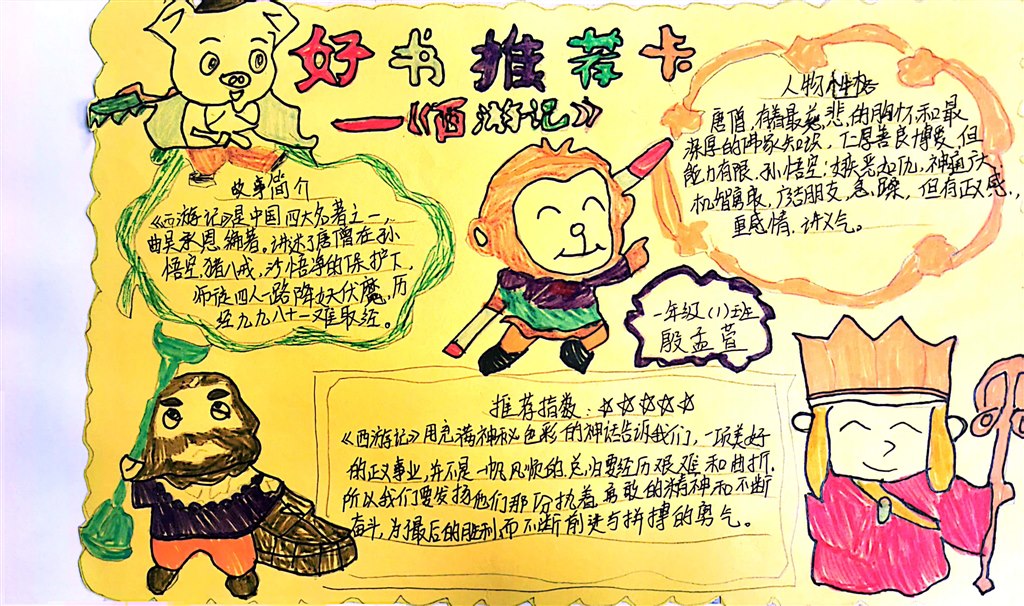 好书推荐卡
—《西游记》
故事简介
《西游记》是中国四大名著之一,
由吴承恩编著。讲述了唐僧在孙
悟空,猪八戒,沙悟净的保护下,
师徒四人一路降妖伏魔,历
经九九八十一难取经。
人物性格
唐僧,有着最慈悲的胸怀和最
深厚的佛家知识,仁厚善良博爱,但
能力有限。孙悟空:嫉恶如仇,神通广大
机智勇敢,广结朋友,急躁,但有正义感,
重感情,讲义气。
一年级(1)班
殷孟萱
推荐指数:☆☆☆☆☆
《西游记》用充满神秘色彩的神话告诉我们,一项美好
的正义事业,并不是一帆风顺的,总归要经历艰难和曲折,
所以我们要发扬他们那份执着勇敢的精神和不断
奋斗,为最后的胜利而不断前进与拼搏的勇气。